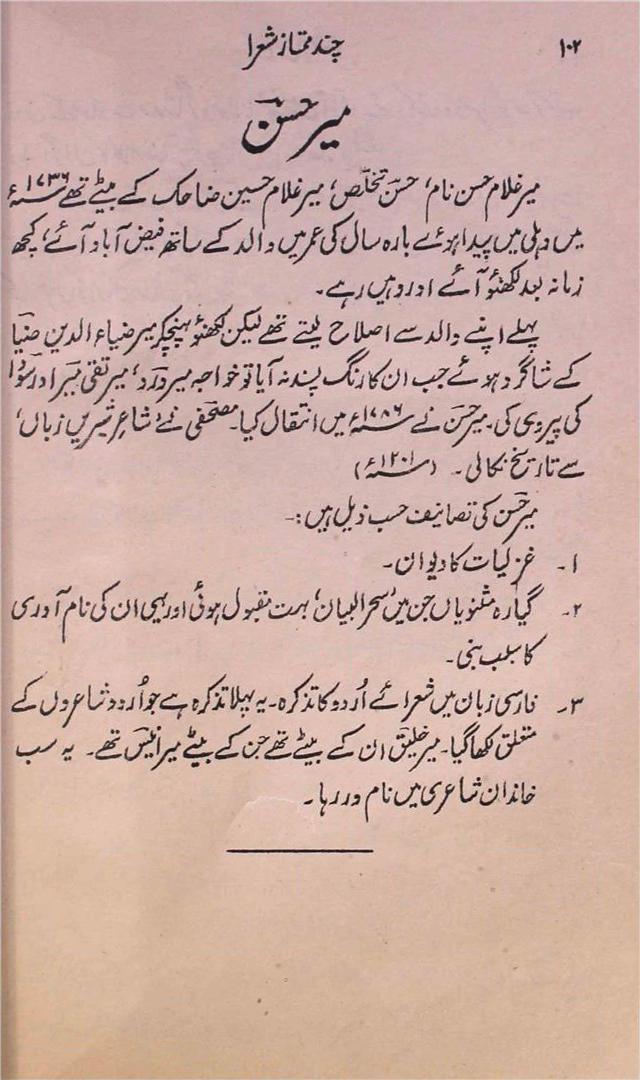 ۱۰۲
چند ممتاز شعرا
میر حسنؔ
میر غلام حسن نام، حسنؔ تخلّص، میر غلام حسین ضاحک کے بیٹے تھے ۱۷۳۶ء
میں دہلی میں پیدا ہوئے بارہ سال کی عمر میں والد کے ساتھ فیض آباد آئے، کچھ
زمانہ بعد لکھنؤ آئے اور وہیں رہے۔
پہلے اپنے والد سے اصلاح لیتے تھے لیکن لکھنؤ پہنچکر میر ضیاء الدین ضیاؔ
کے شاگرد ہوئے جب ان کا رنگ پسند نہ آیا تو خواجہ میر دردؔ، میر تقی میرؔ اور سوداؔ
کی پیروی کی۔ میر حسنؔ نے ۱۷۸۶ء میں انتقال کیا۔ مصحفیؔ نے ’شاعر شیریں زباں‘
سے تاریخ نکالی۔ (۱۲۰۱ء)
میر حسنؔ کی تصانیف حسب ذیل ہیں:۔
۱۔ غزلیات کا دیوان۔
۲۔ گیارہ مثنویاں جن میں ’سحر البیان‘ بہت مقبول ہوئی اور یہی ان کی نام آوری
کا سبب بنی۔
۳۔ فارسی زبان میں شعرائے اُردو کا تذکرہ۔ یہ پہلا تذکرہ ہے جو اُردو شاعروں کے
متعلق لکھا گیا۔ میر خلیقؔ ان کے بیٹے تھے جن کے بیٹے میر انیسؔ تھے۔ یہ سب
خاندان شاعری میں نام ور رہا۔